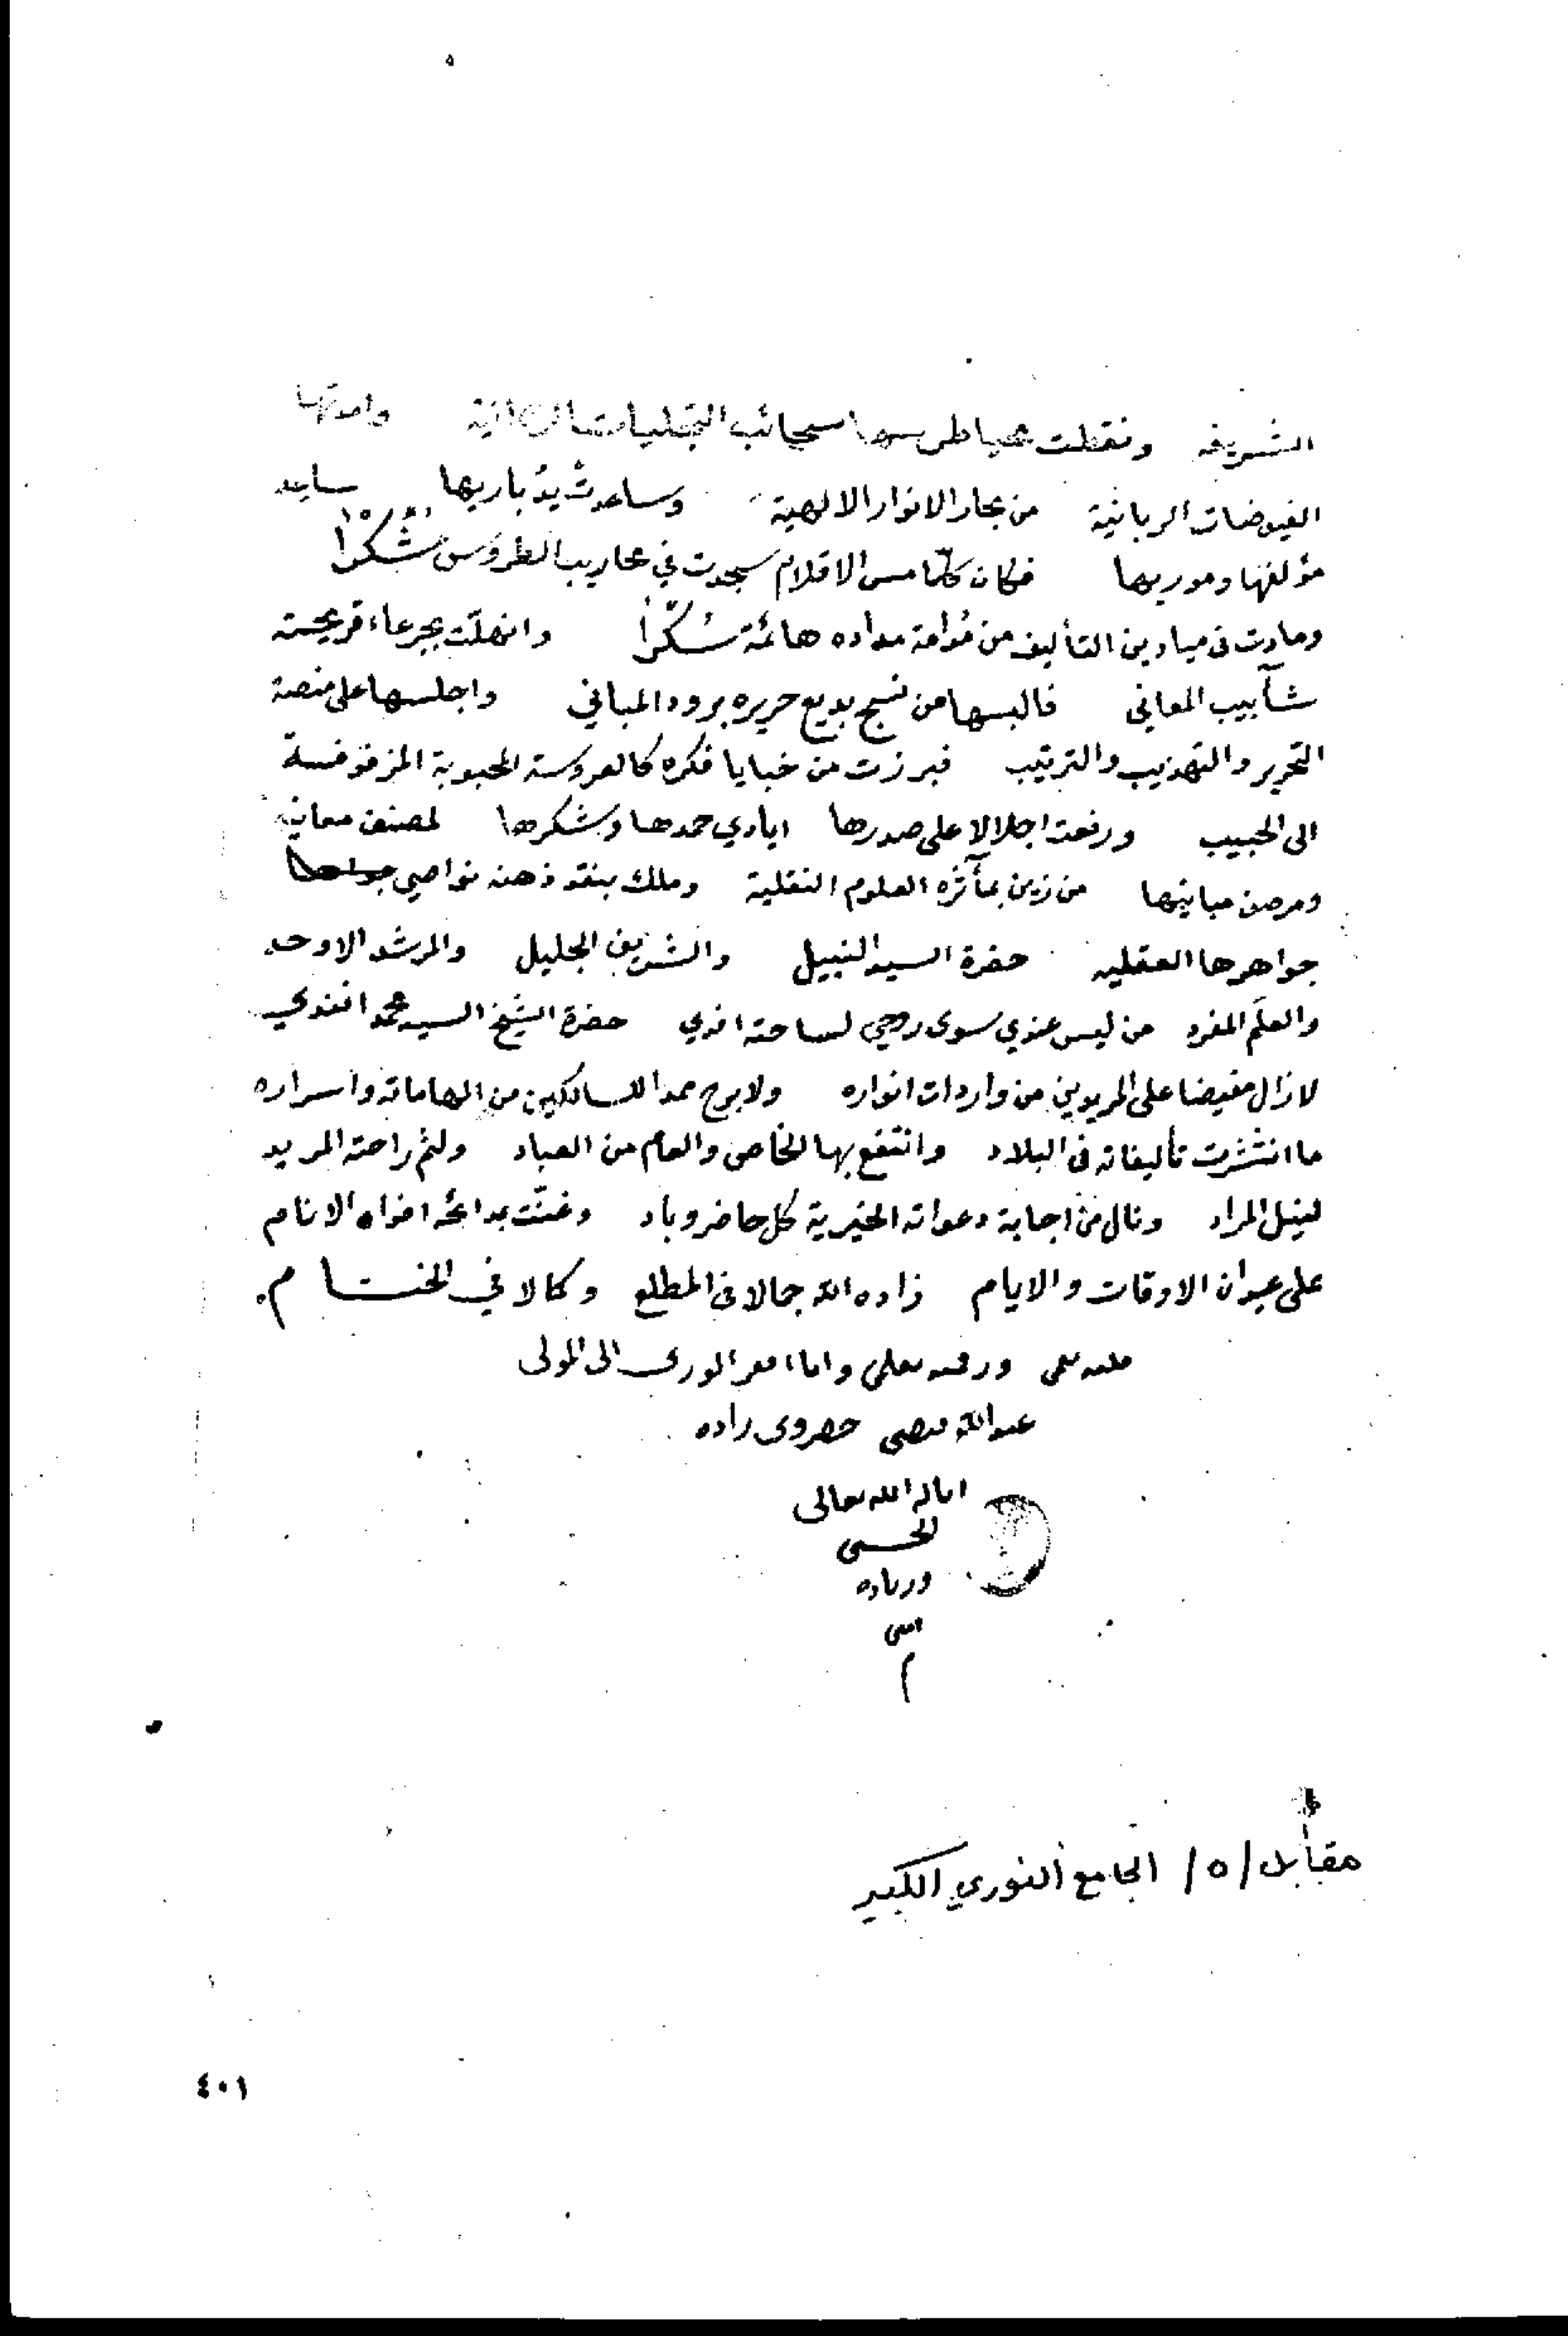 الشريفة ونقطت محيا طرسها سحائب التجليات وامدتها
الفيوضات الربانية من بحار الانوار الالهية وساعدت يد باريها ساعد
مؤلفها ومبريها فكان كلما مس الاقلام سجدت في محاريب الطروس شكرا
ومادت في ميادين التأليف من مدامة مداده هائمة سكرا وانهلت بجرعاء قريحته
شآبيب المعاني فالبسها من نسج بديع حريره برود المباني واجلسها على منصة
التحرير والتهذيب والترتيب فبرزت من خبايا فكره كالعروسة المحبوبة المزفوفة
الى الحبيب ورفعت اجلالا على صدرها ايادي حمدها وشكرها لمصنف معانيها
ومرصن مبانيها من زين بمآثره العلوم النقلية وملك بنقد ذهنه نواصي
جواهرها العقليه حضرة السيد النبيل والشريف الجليل والمرشد الاوحد
والعلم المفرد من ليس عندي سوى روحي لساحته افدي حضرة الشيخ السيد محمد افندي
لازال مفيضا على المريدين من واردات انواره ولابرح ممدا للسالكين من الهاماته واسراره
ما انتشرت تأليفاته في البلاد وانتفع بها الخاص والعام من العباد ولثم راحته المريد
لنيل المراد ونال من اجابة دعواته الخيرية كل حاضر وباد وغنّت بمدائحه افواه الانام
على عيدان الاوقات والايام زاده الله جمالا في المطلع وكمالا في الختام.
ورقمه بقلمي وانا افقر الورى الى المولى
عبدالله زاده
اناله الله تعالى
الحسنى
وزياده
امين
م
مقابل /٥/ الجامع النوري الكبير
٤٠١